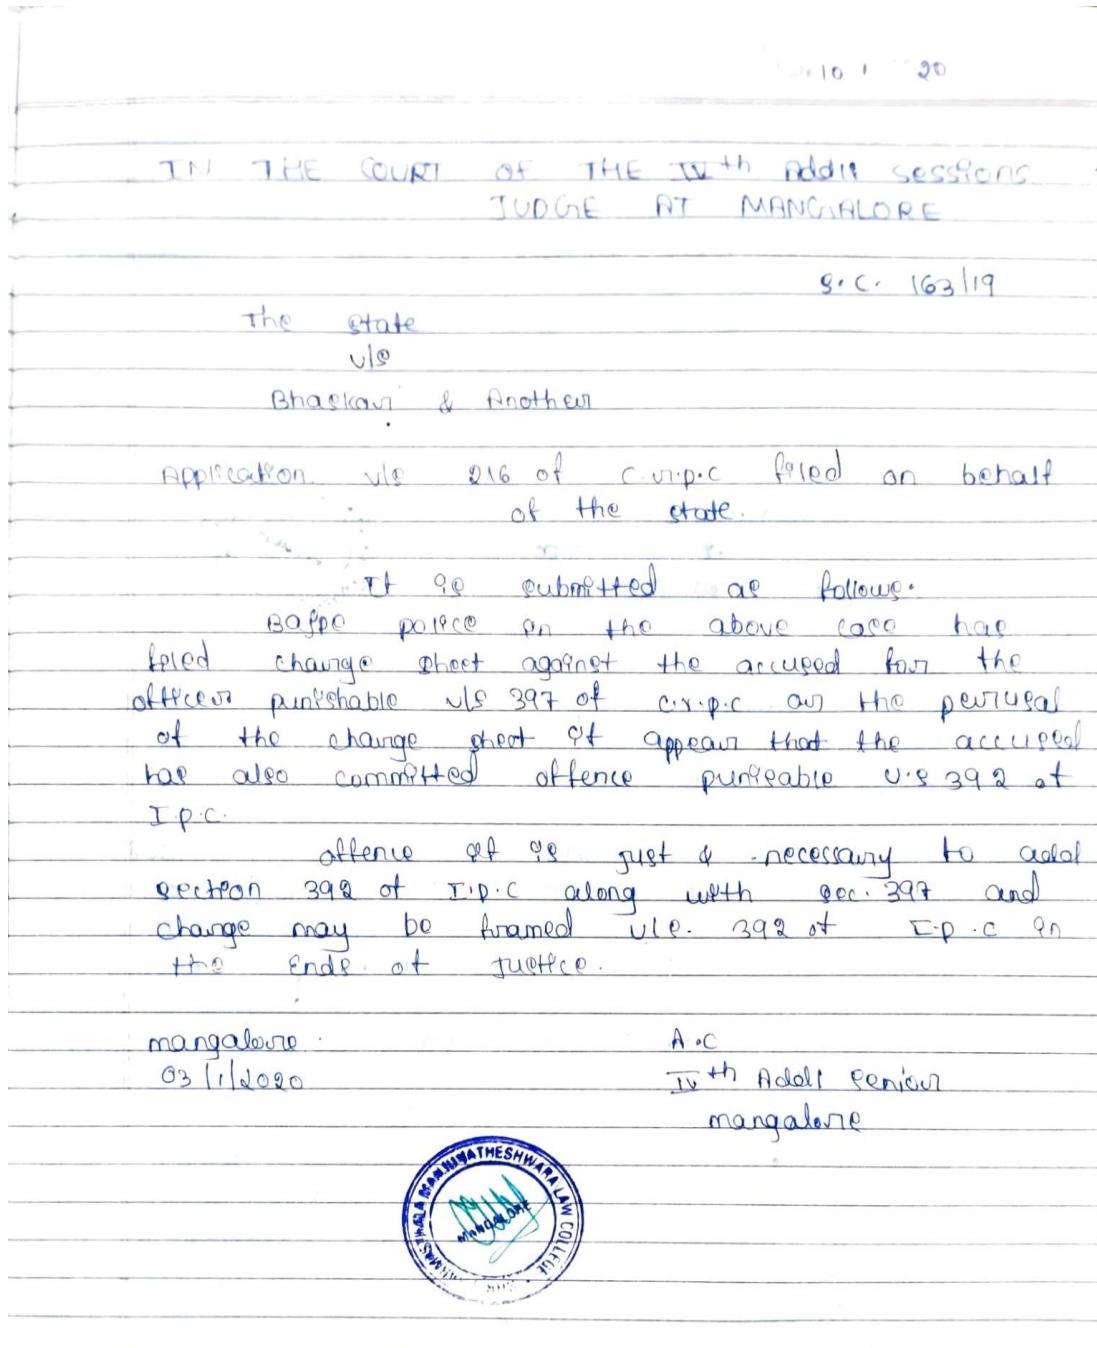 10 1 20
IN THE COURT OF THE IVth Addll sessions
JUDGE AT MANGALORE
S.C. 163/19
The state
v/s
Bhaskar & Another
Application u/s 216 of c.r.p.c filed on behalf
of the state.
It is submitted as follows.
Bajpe police in the above case has
filed charge sheet against the accused for the
officer punishable u/s 397 of c.r.p.c on the perusal
of the charge sheet it appear that the accused
has also committed offence punisable u.s 392 of
I.p.c.
offence it is just & necessary to add
section 392 of I.p.c along with sec. 397 and
charge may be framed u/s. 392 of I.p.c in
the Ends of Justice.
mangalore
03/1/2020
A.C
IVth Addl senior
mangalore
MANJUNATHESHWARA LAW COLLEGE
MANGALORE